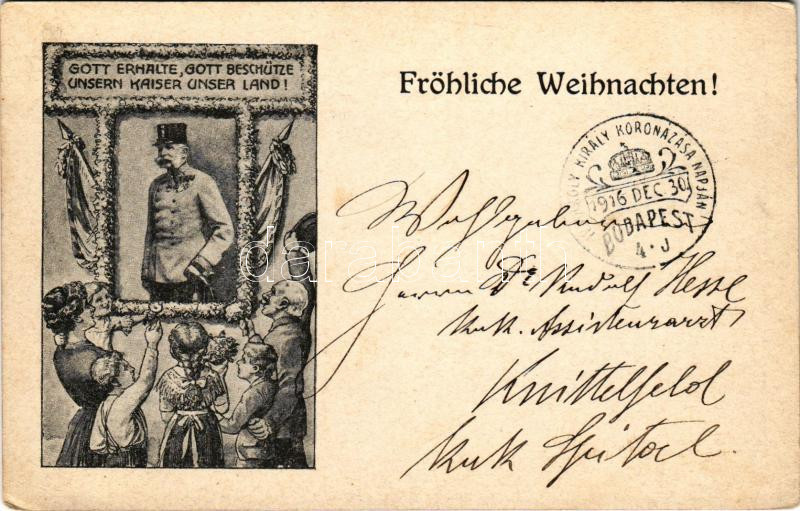 GOTT ERHALTE, GOTT BESCHÜTZE
UNSERN KAISER UNSER LAND!
Fröhliche Weihnachten!
KÁROLY KIRÁLY KORONÁZÁSA NAPJÁN
1916 DEC 30
BUDAPEST
4 · J
Wohlgeboren
Herrn Dr Rudolf Hesse
kuk. Assistenzarzt
Knittelfeld
kuk Spital.
darabanth